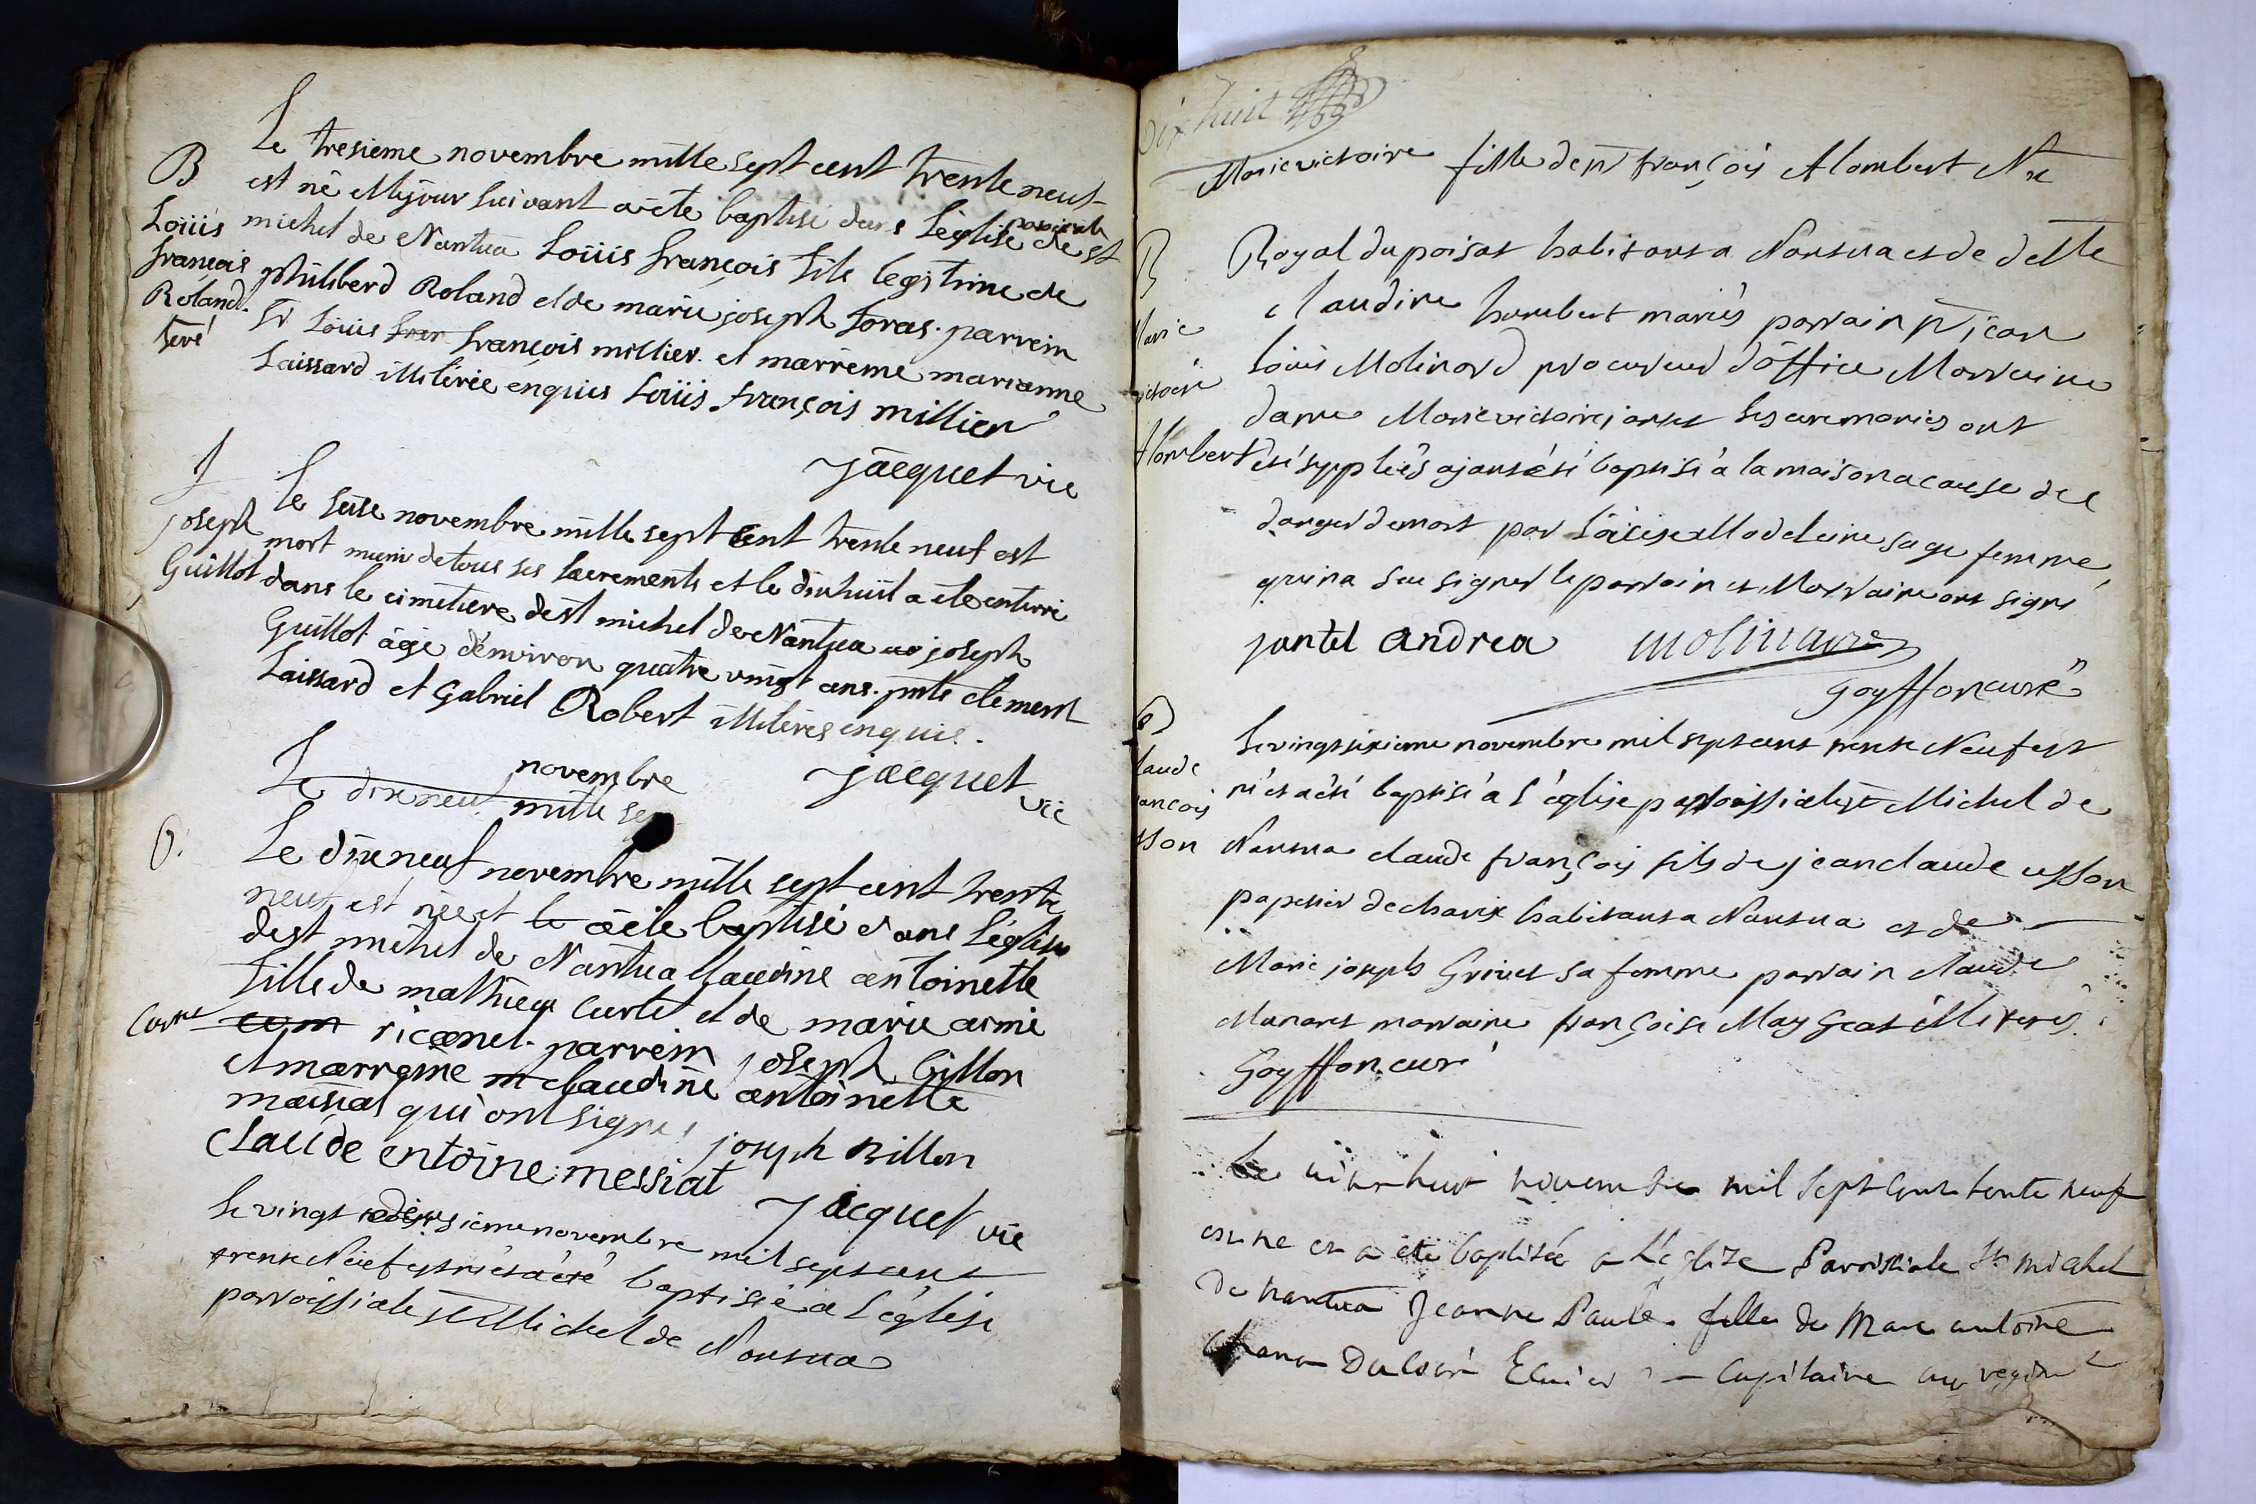 B
Loüis
françois
Roland.
Le tresieme novembre mille sept cent trente neuf
est né Mejour suivant aéte baptisé dans L'église paroissiale de st
michel de Nantua Loüis françois fils legitime de
philiberd Roland et de marie joseph Loras. parrein
sr Loüis fran françois millier. et marreme marianne
Laissard illiterée enquis Loüis françois millier
jacquet vic
joseph
Guillot
Le seise novembre mille sept cent trente neuf est
mort muni detous ses sacrements et le dixhuit a ete enterré
dans le cimetiere de st michel de Nantua joseph
Guillot âgé d'environ quatre vingt ans. pnts clement
Laissard et Gabriel Robert illiteres enquis.
jacquet vic
Le dixneuf novembre mille sep
B.
Curtet
Le dixneuf novembre mille sept cent trente
neuf est nee et le aéte baptisé dans L'église
de st michel de Nantua Claudine antoinette
fille de mathieu Curtet et de marie aimé
ricanet. parrein joseph Billon
et marreme m claudine antoinette
maissiat qui ont signes joseph Billon
Claude entoine messiat
jacquet vic
Le vingt deuxsieme novembre mil septcent
trente Neuf est né et a été baptisée a L'église
parroissiale st Michel de Nantua
Dix huit
Marie victoire fille de françois Alombert Nre
B
Marie
victoire
Alombert
Royal du poisat habitant a Nantua et de delle
claudine humbert mariés parrain jean
Louis Molinard procureur d'office Marraine
dame Marie victoire jantet les ceremonies ont
été suppleés ajant été baptisé à la maison a cause del
danger de mort par Loüise Madeleine sage femme,
qui n'a sçu signer le parrain et Marraine ont signé
jantet andrea molinard
Goyffon curé
B
claude
françois
usson
Le vingt sixieme novembre mil sept cent trente Neuf est
né et a été baptisé à L'église parroissiale st Michel de
Nantua claude françois fils de jean claude usson
papetier de charix habitant a Nantua et de
Marie joseph Grivet sa femme parrain claude
Manant marraine françoise Maygeat illiterés.
Goyffon curé
Le vint huit novembre mil sept cent trente neuf
est né et a été baptisée a L'église Parroissiale St michel
de nantua Jeanne Paule fille de Marc antoine
Capitaine au regim